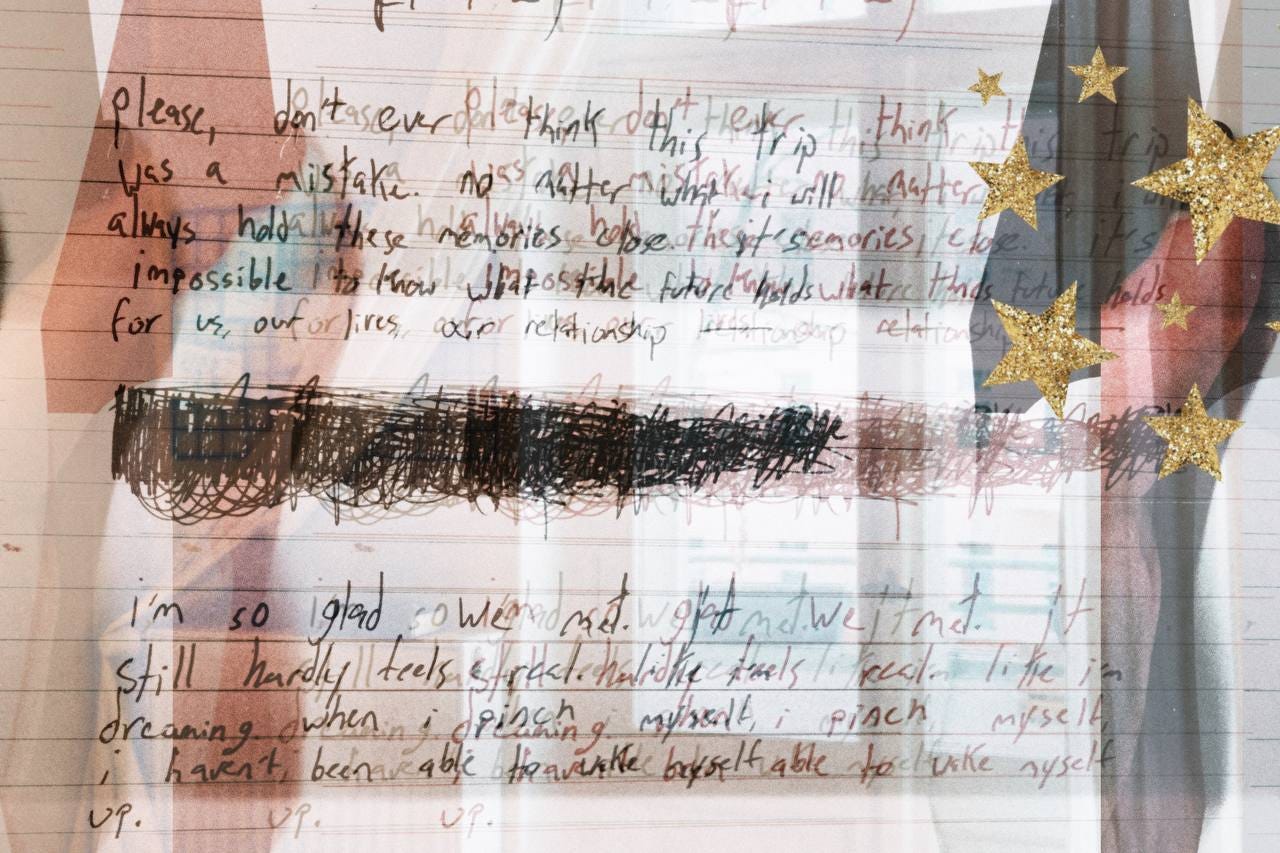 please, don't ever think this trip
was a mistake. no matter what i will
always hold these memories close. it's
impossible to know what the future holds
for us, our lives, our relationship
i'm so glad we met. it
still hardly feels real. like i'm
dreaming. when i pinch myself,
i haven't been able to wake myself
up.